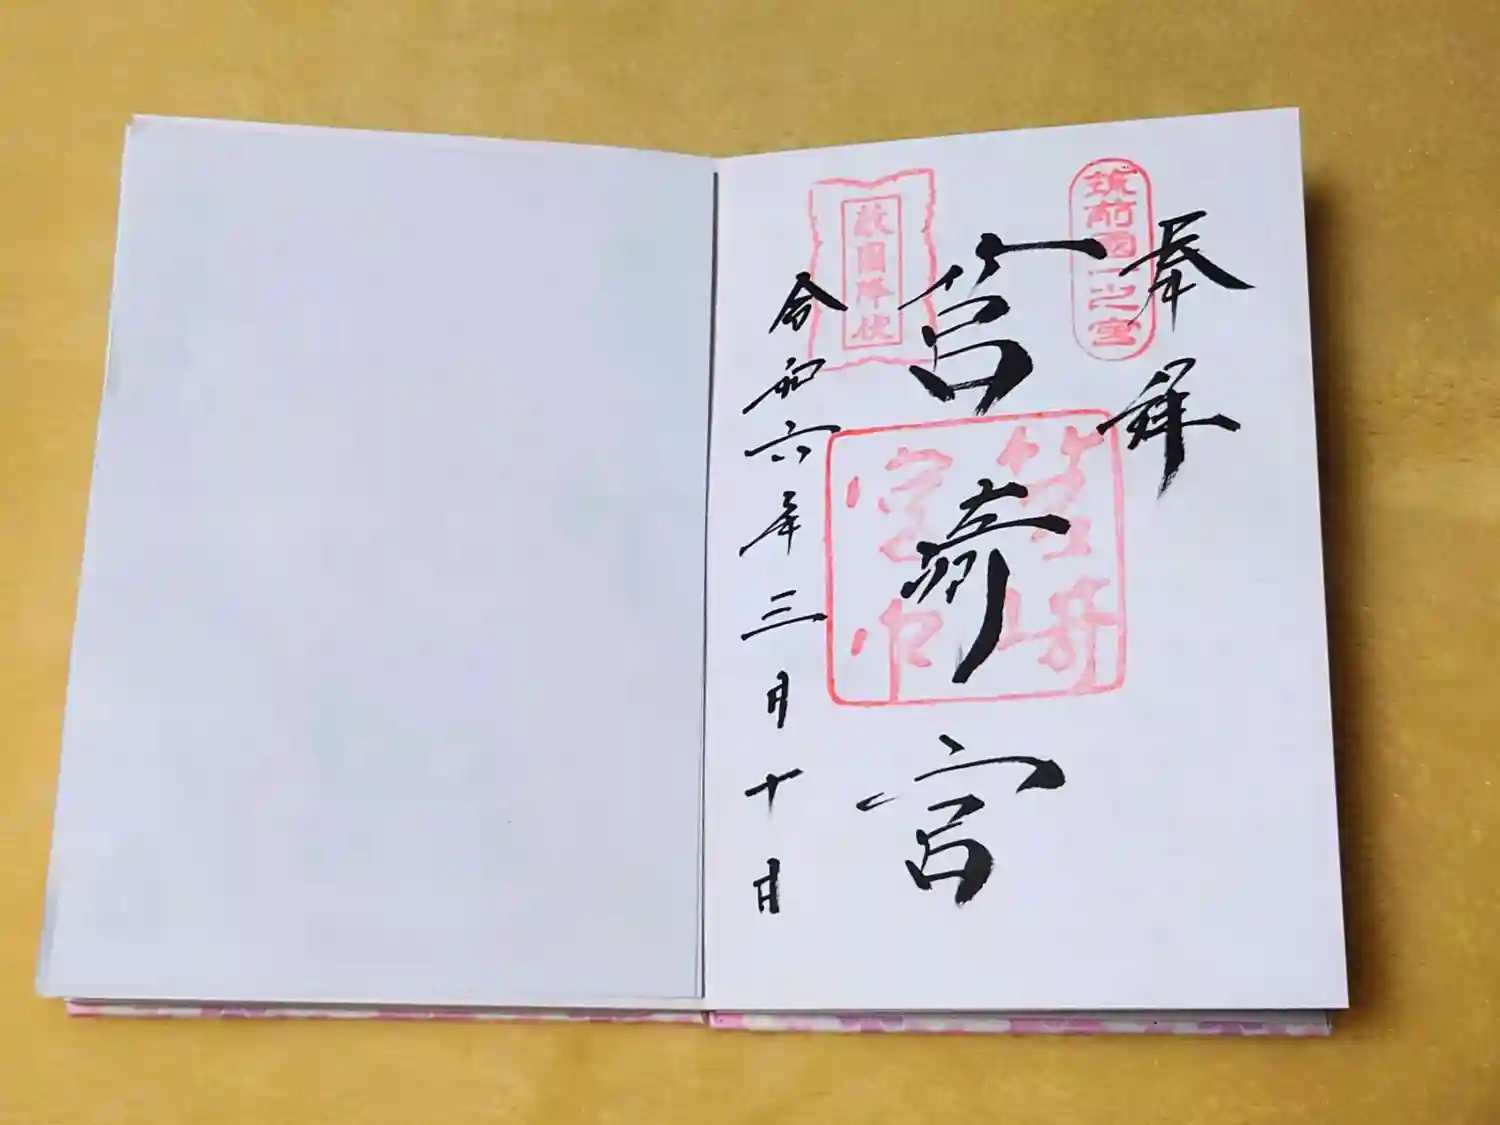 奉拝
筑前國一之宮
筥崎宮
筥崎宮印
敵國降伏
令和六年三月十日